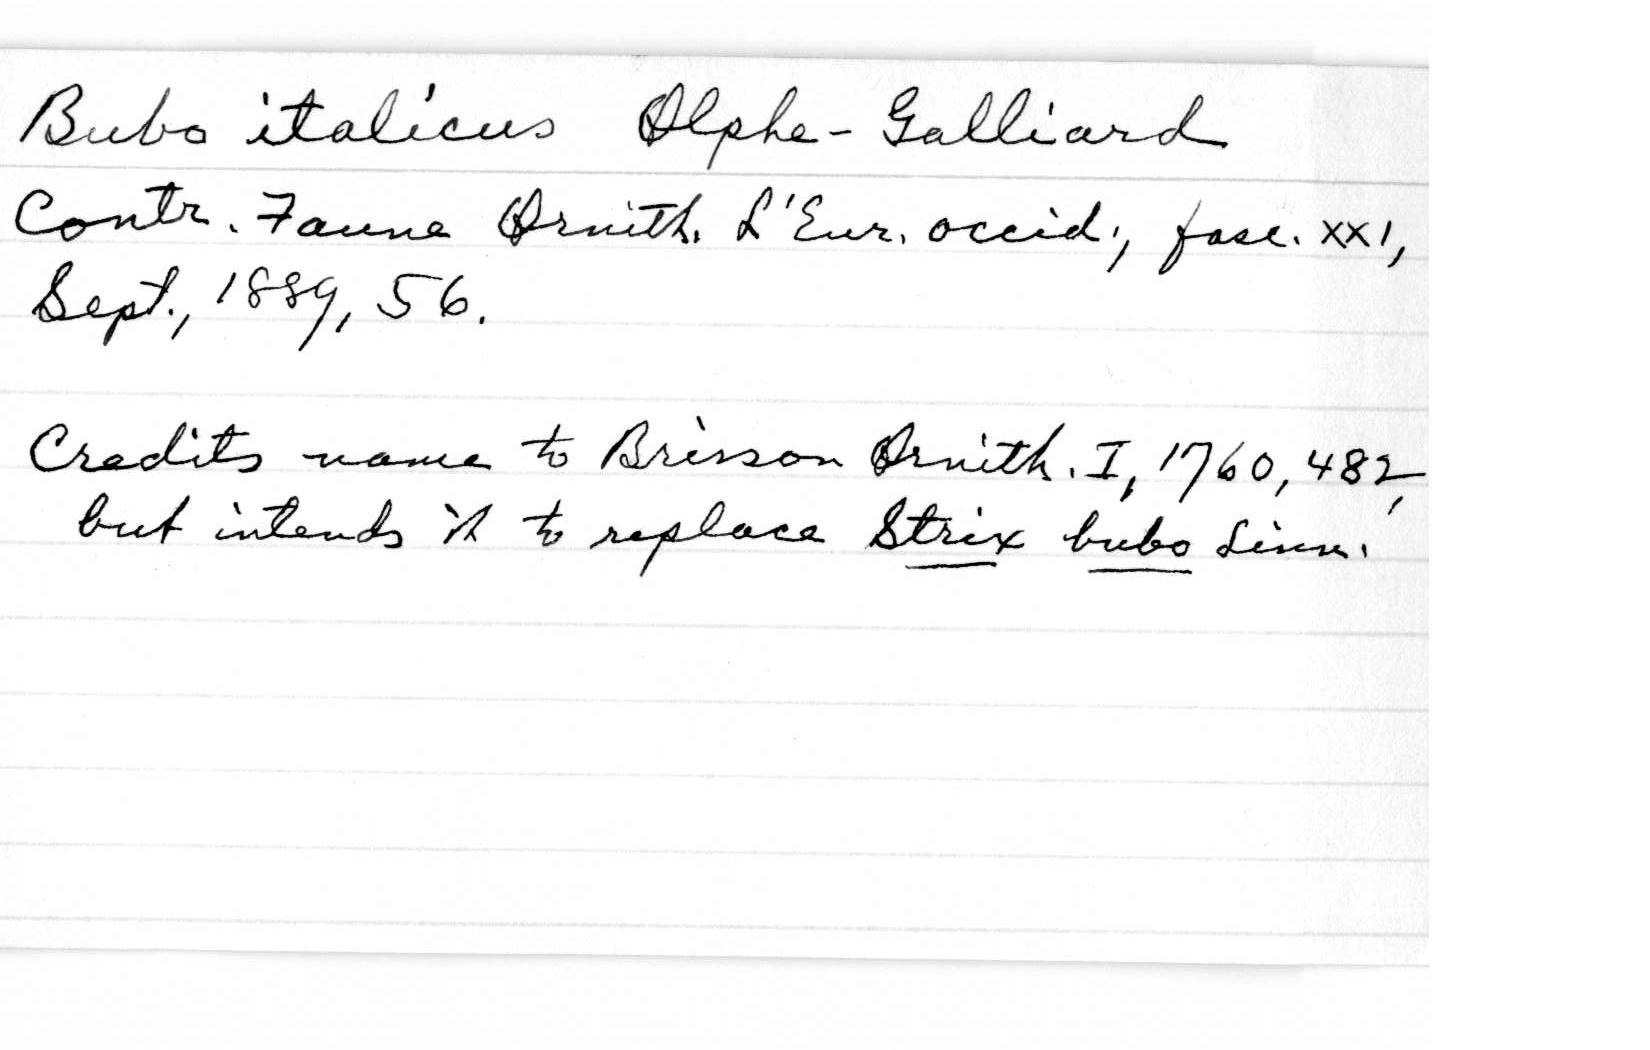 Bubo italicus Olphe-Galliard
Contr. Faune Ornith. L'Eur. occid., fasc. XXI,
Sept., 1889, 56.
Credits name to Brisson Ornith. I, 1760, 482,
but intends it to replace Strix bubo Linn.